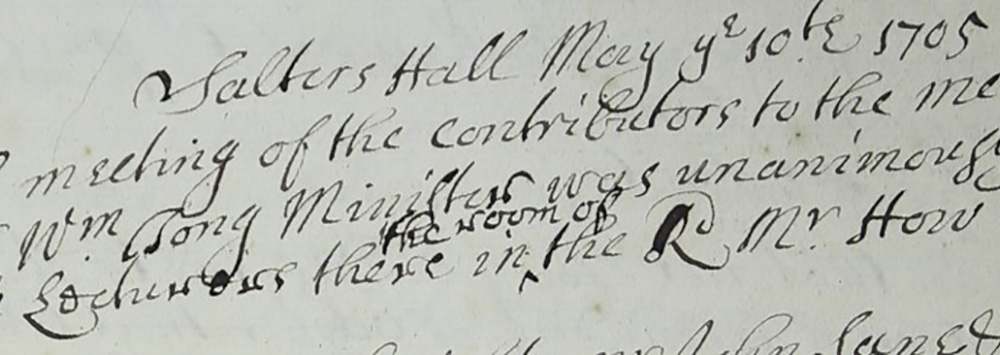 Salters Hall May ye 10th 1705
meeting of the contributors to the me
Wm Tong Minister was unanimously
the room of
Lecturers there in ^ the Rd Mr How
John Jane